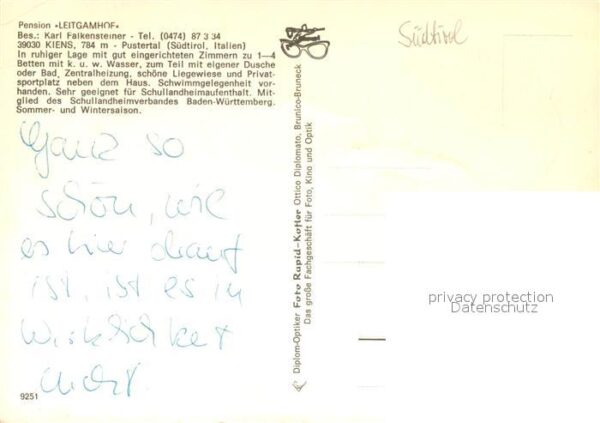 Pension »LEITGAMHOF«
Bes.: Karl Falkensteiner - Tel. (0474) 87 3 34
39030 KIENS, 784 m - Pustertal (Südtirol, Italien)
In ruhiger Lage mit gut eingerichteten Zimmern zu 1—4
Betten mit k. u. w. Wasser, zum Teil mit eigener Dusche
oder Bad, Zentralheizung, schöne Liegewiese und Privat-
sportplatz neben dem Haus. Schwimmgelegenheit vor-
handen. Sehr geeignet für Schullandheimaufenthalt. Mit-
glied des Schullandheimverbandes Baden-Württemberg.
Sommer- und Wintersaison.
Ganz so
schön, wie
es hier drauf
ist, ist es in
Wirklichkeit
nicht.
9251
Diplom-Optiker Foto Rapid-Kofler Ottico Diplomato, Brunico-Bruneck
Das große Fachgeschäft für Foto, Kino und Optik
Südtirol
privacy protection
Datenschutz